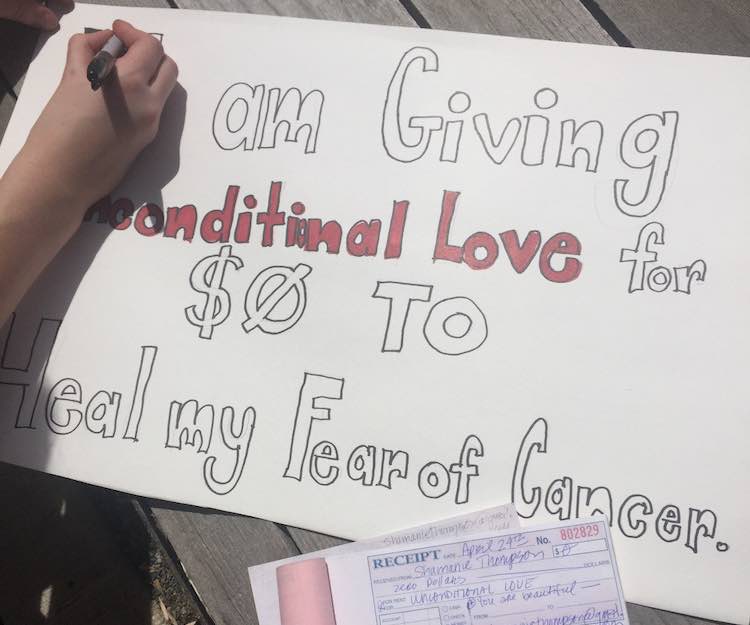 I am Giving
Unconditional Love for
$0 To
Heal my Fear of Cancer.
RECEIPT DATE April 29th No. 802829
RECEIVED FROM Shamanie Thompson $ 0
Zero Dollars DOLLARS
UNCONDITIONAL LOVE
You are beautiful
ACCOUNT CASH
FROM TO